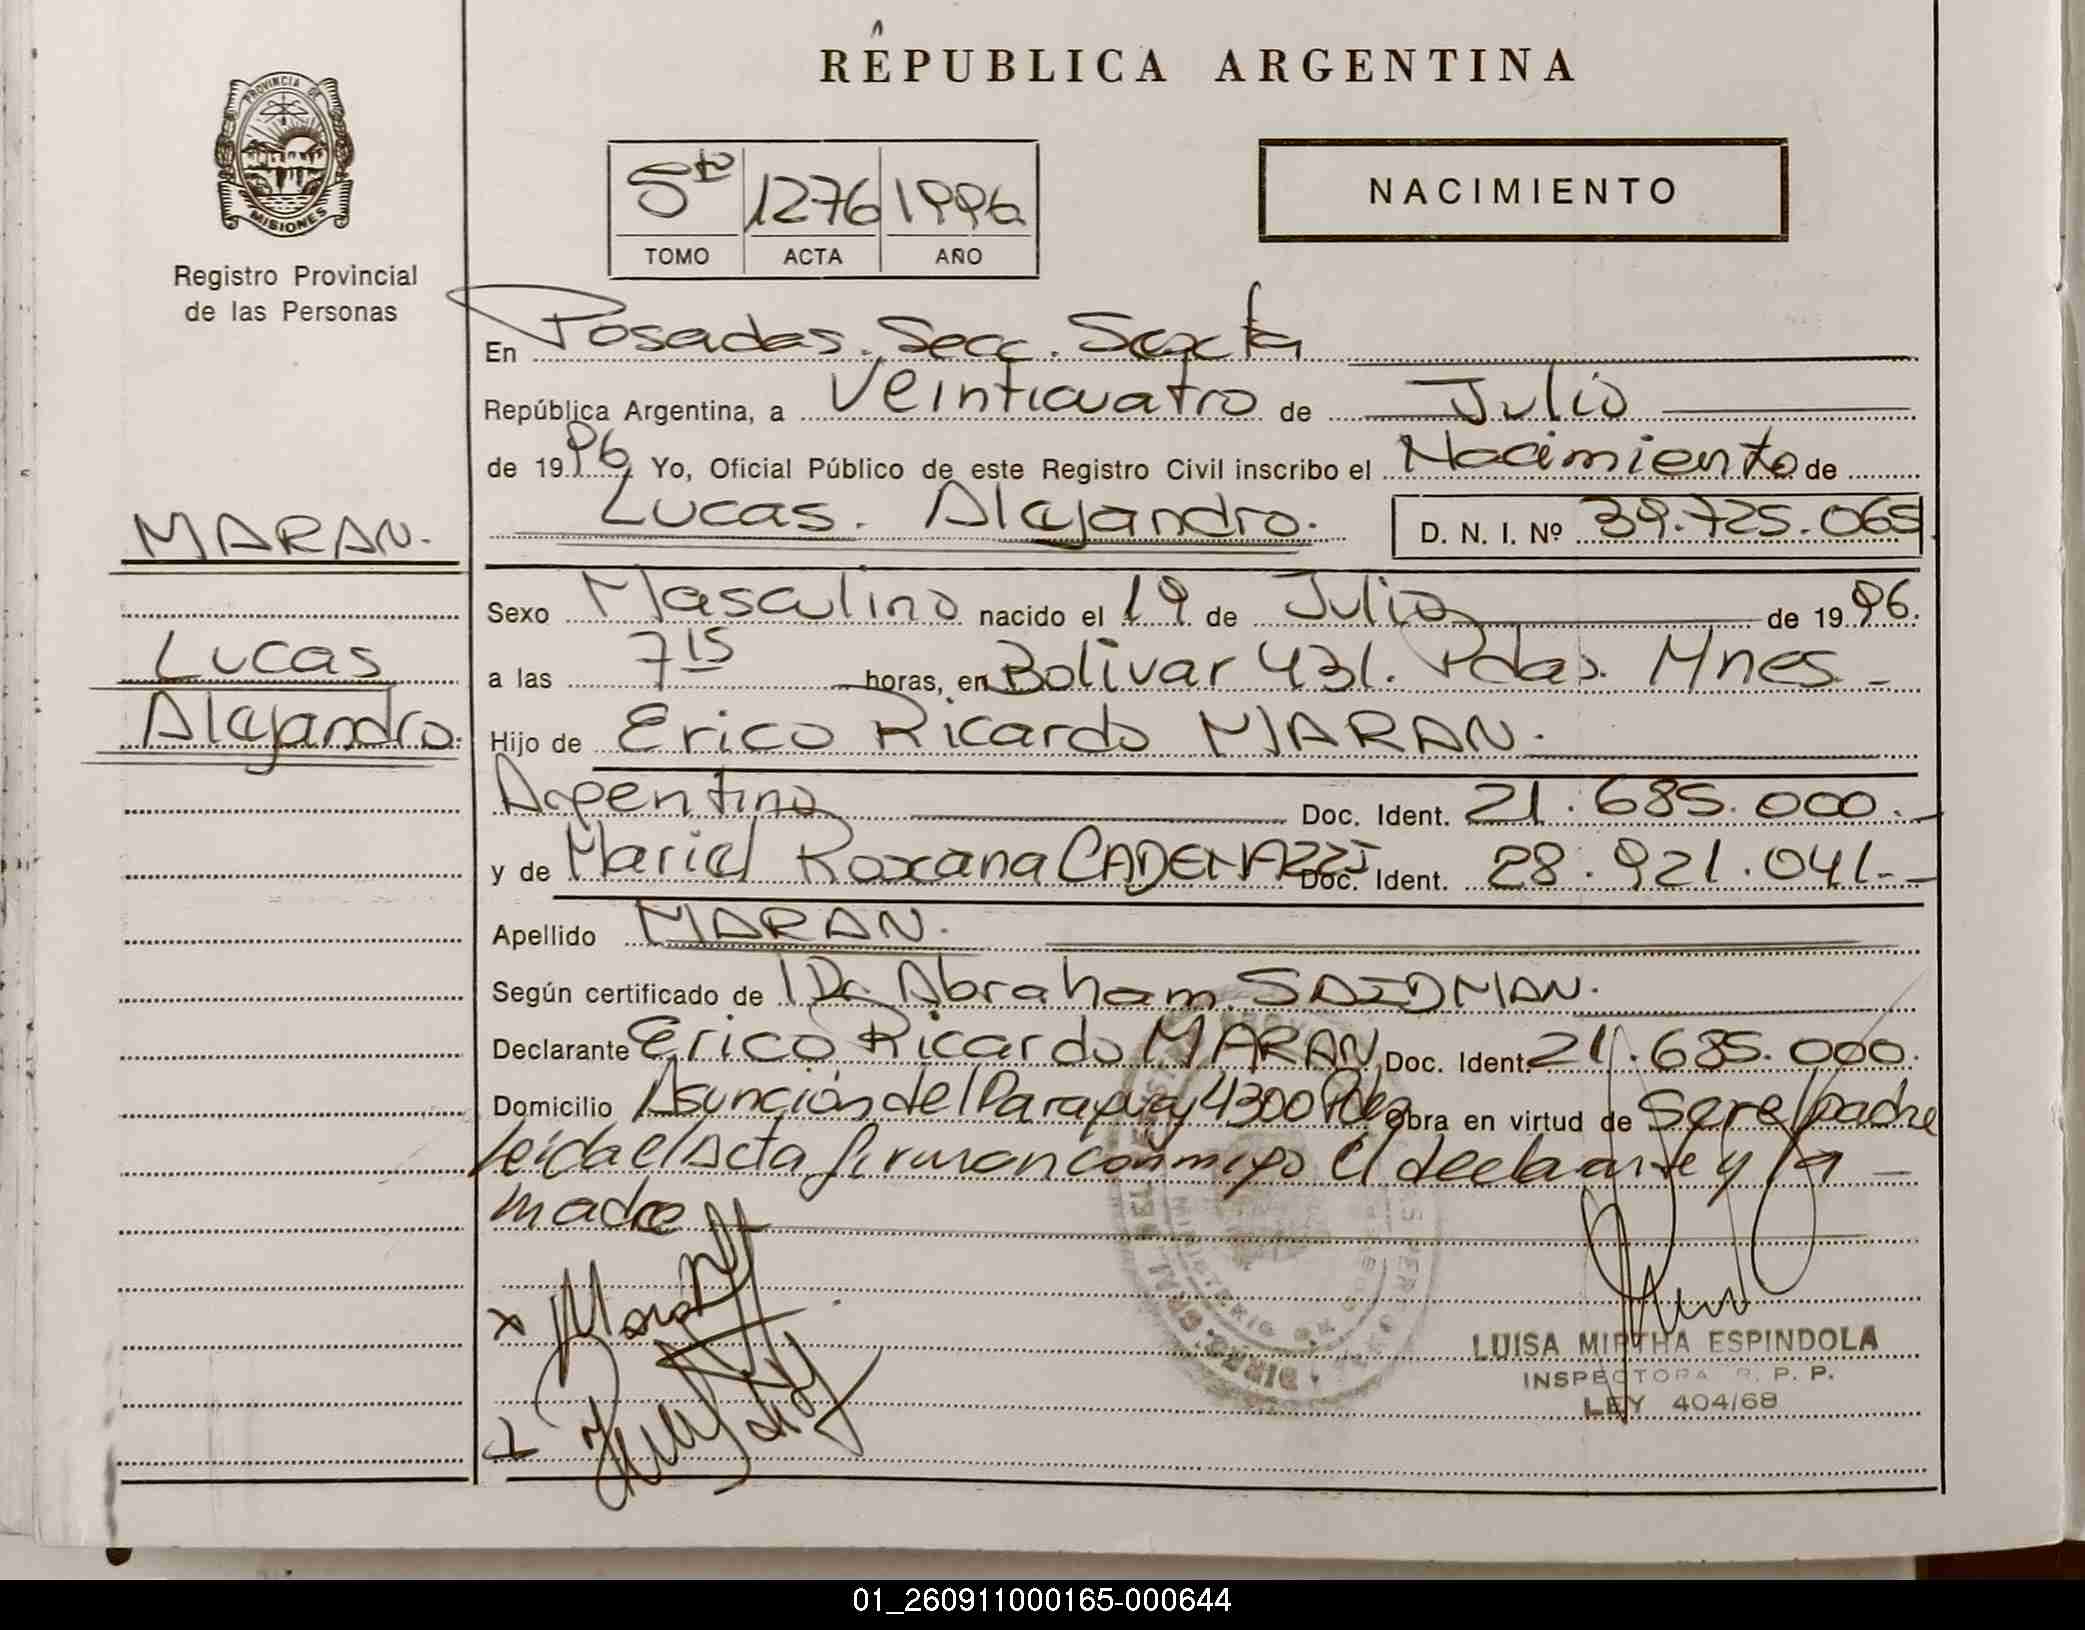 REPUBLICA ARGENTINA
PROVINCIA DE
MISIONES
Registro Provincial
de las Personas
5to 1276 1996
TOMO ACTA AÑO
NACIMIENTO
En Posadas. Secc. Sexta
República Argentina, a Veinticuatro de Julio
de 1996 Yo, Oficial Público de este Registro Civil inscribo el Nacimiento de
Lucas. Alejandro. D. N. I. Nº 39.725.065
MARAN.
Lucas
Alejandro.
Sexo Masculino nacido el 19 de Julio de 1996.
a las 7 15 horas, en Bolivar 431. Pdas. Mnes
Hijo de Erico Ricardo MARAN.
Argentino Doc. Ident. 21.685.000.
y de Mariel Roxana CADENAZZI Doc. Ident. 28.921.041.
Apellido MARAN.
Según certificado de Dr. Abraham SAIDMAN.
Declarante Erico Ricardo MARAN Doc. Ident. 21.685.000.
Domicilio Asunción del Paraguay 4300 Pdas Obra en virtud de ser el padre
leída el Acta firman conmigo el declarante y la
madre
LUISA MIRTHA ESPINDOLA
INSPECTORA R. P. P.
LEY 404/68
01_260911000165-000644